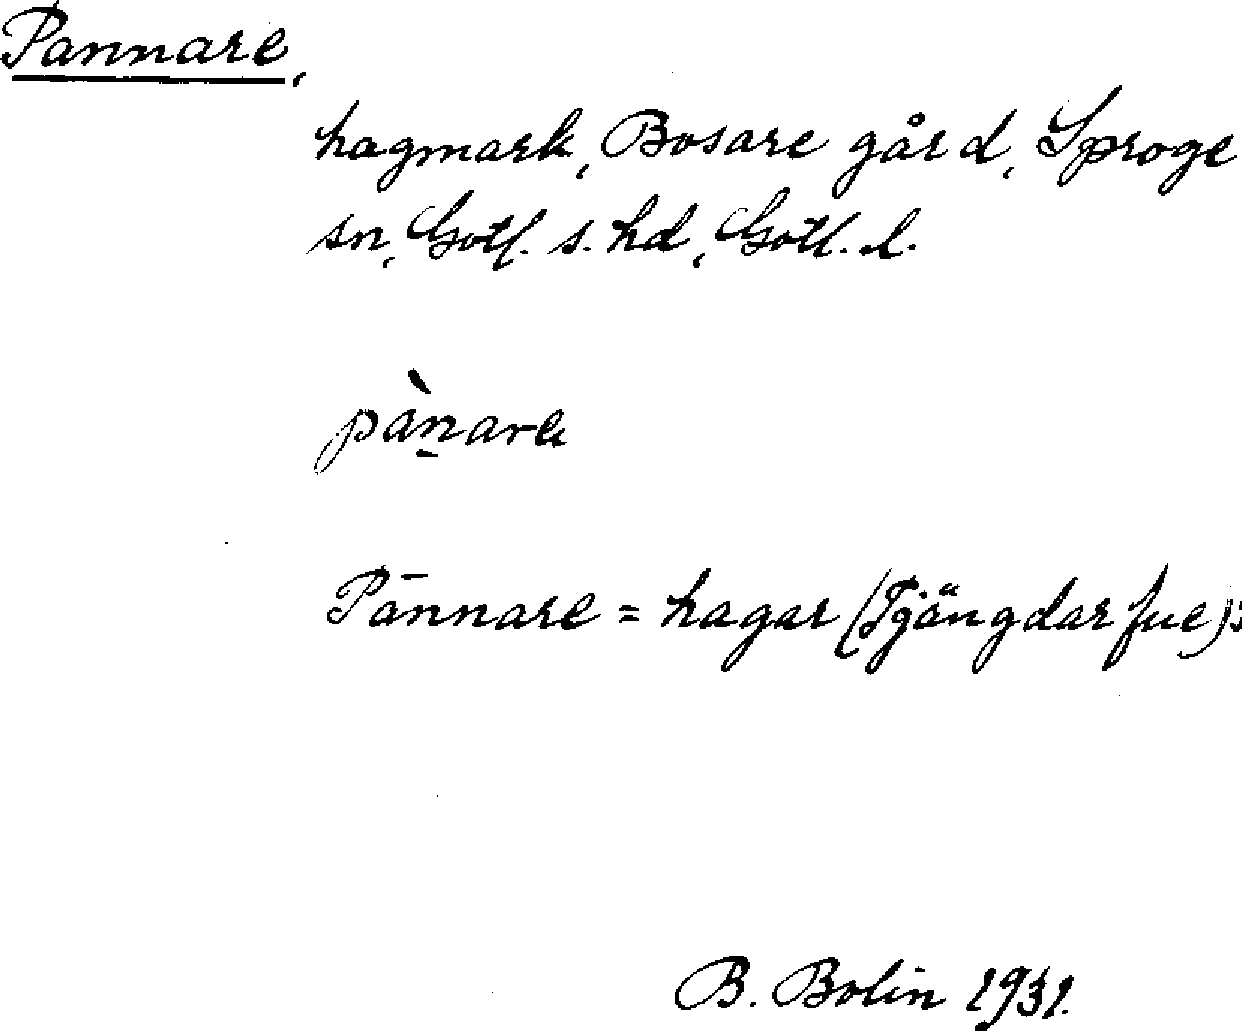 Pannare,
hagmark, Bosare gård, Sproge
sn, Gotl. s. hd, Gotl. l.
pànare
Pānnare = hagar (Tjängdarfue):
B. Bolin 1931.